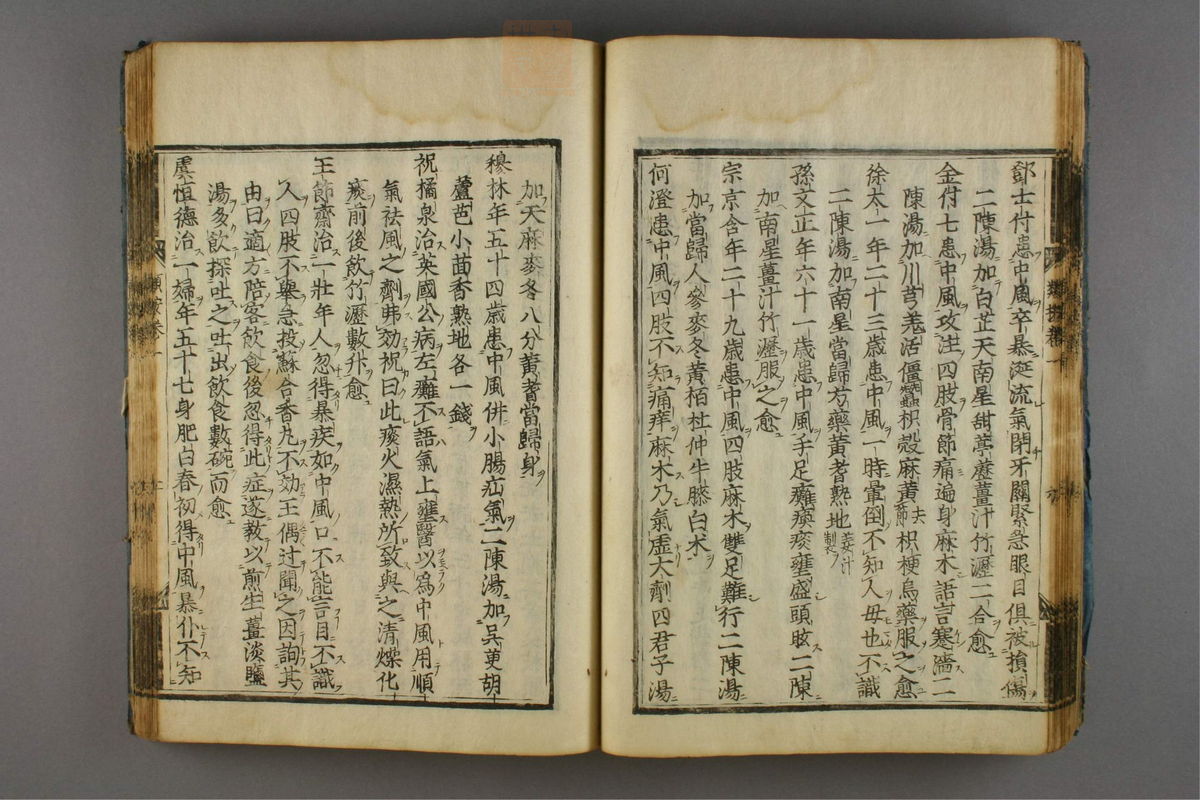 鄧士付患中風卒暴涎流氣閉牙關緊急眼目俱被損傷
二陳湯加白芷天南星甜葶藶薑汁竹瀝二合愈
金付七患中風攻注四肢骨節痛遍身麻木語言蹇澁二
陳湯加川芎羌活僵蠶枳殼麻黄去節枳梗烏藥服之愈
徐太一年二十三歳患中風一時暈倒不知人毋也不識
二陳湯加南星當歸芍藥黄耆熟地姜汁製
孫文正年六十一歳患中風手足癱瘓痰壅盛頭眩二陳
加南星薑汁竹瀝服之愈
宗京含年二十九歳患中風四肢麻木雙足難行二陳湯
加當歸人參麥冬黄栢杜仲牛膝白朮
何澄患中風四肢不知痛痒麻木乃氣虚大劑四君子湯
加天麻麥冬八分黄耆當歸身
穆林年五十四歳患中風併小腸疝氣二陳湯加吴茰胡
蘆芭小茴香熟地各一錢
祝橘泉治英國公病左癱不語氣上壅醫以爲中風用順
氣祛風之劑弗効祝曰此痰火濕熱所致與之清燥化
痰前後飲竹瀝數升愈
王節齋治一壯年人忽得暴疾如中風口不能言目不識
人四肢不舉急投蘇合香丸不効王偶过聞之因詢其
由曰適方陪客飲食後忽得此症遂教以煎生薑淡鹽
湯多飲探吐之吐出飲食數碗而愈
虞恒德治一婦年五十七身肥白春初得中風暴仆不知